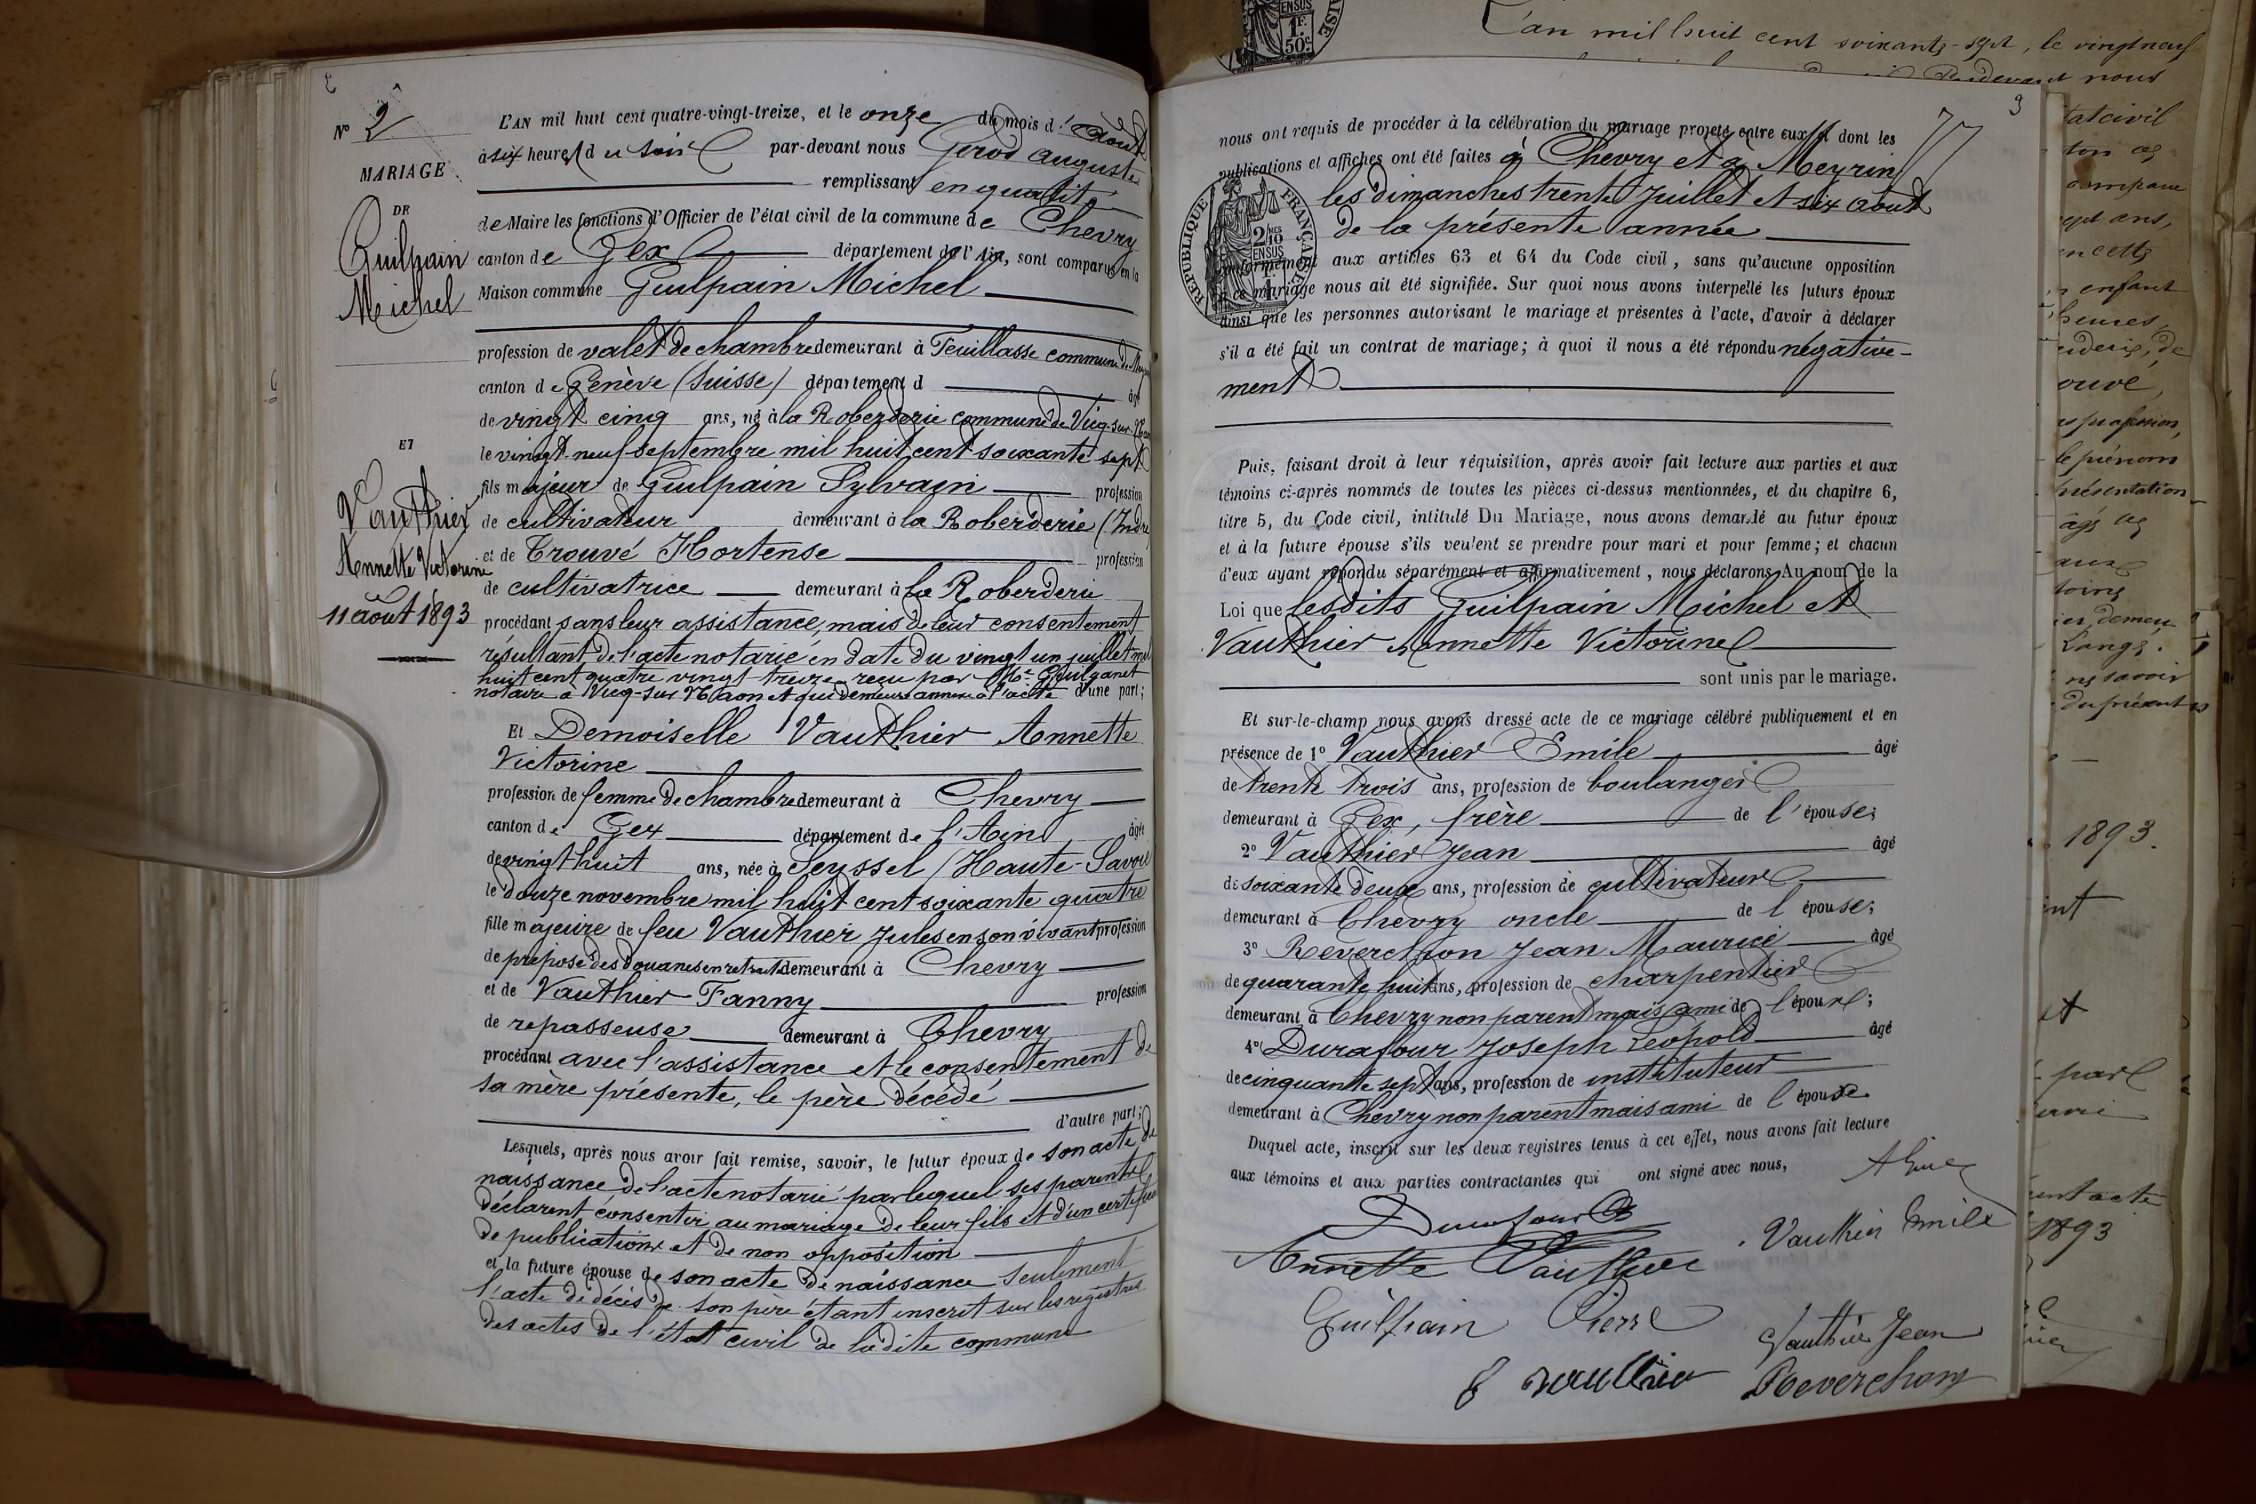 2
N° 2
MARIAGE
DE
Guilpain
Michel
ET
Vauthier
Annette Victorine
11 août 1893
L'AN mil huit cent quatre-vingt-treize, et le onze du mois d' août
à six heures du soir par-devant nous Girod Auguste
remplissant en qualité
de Maire les fonctions d'Officier de l'état civil de la commune de Chevry
canton de Gex département de l'Ain, sont comparus en la
Maison commune Guilpain Michel
profession de valet de chambre demeurant à Feuillasse commune de Meyrin
canton de Genève (Suisse) département d âgé
de vingt cinq ans, né à la Roberderie commune de Vicq-sur-Nahon
le vingt-neuf septembre mil huit cent soixante sept
fils majeur de Guilpain Sylvain profession
de cultivateur demeurant à la Roberderie (Indre)
et de Trouvé Hortense profession
de cultivatrice demeurant à la Roberderie
procédant sans leur assistance, mais de leur consentement
résultant de l'acte notarié en date du vingt un juillet mil
huit cent quatre vingt treize reçu par Me Guilganet
notaire à Vicq-sur Nahon et qui demeure annexé à l'acte d'une part;
Et Demoiselle Vauthier Annette
Victorine
profession de femme de chambre demeurant à Chevry
canton de Gex département de l'Ain âgée
de vingt huit ans, née à Seyssel (Haute-Savoie
le douze novembre mil huit cent soixante quatre
fille majeure de feu Vauthier Jules en son vivant profession
de préposé des douanes en retraite demeurant à Chevry
et de Vauthier Fanny profession
de repasseuse demeurant à Chevry
procédant avec l'assistance et le consentement de
sa mère présente, le père décédé
d'autre part;
Lesquels, après nous avoir fait remise, savoir, le futur époux de son acte de
naissance, de l'acte notarié par lequel ses parents
déclarent consentir au mariage de leur fils et d'un certificat
de publications et de non opposition
et la future épouse de son acte de naissance seulement
l'acte de décès de son père étant inscrit sur les registres
des actes de l'état civil de la dite commune
3
nous ont requis de procéder à la célébration du mariage projeté entre eux et dont les
publications et affiches ont été faites à Chevry et à Meyrin
les dimanches trente Juillet et six août
de la présente année
conformément aux articles 63 et 64 du Code civil, sans qu'aucune opposition
à ce mariage nous ait été signifiée. Sur quoi nous avons interpellé les futurs époux
ainsi que les personnes autorisant le mariage et présentes à l'acte, d'avoir à déclarer
s'il a été fait un contrat de mariage; à quoi il nous a été répondu négative-
ment
RÉPUBLIQUE FRANÇAISE
2/10 NES
EN SUS
1F.
Puis, faisant droit à leur réquisition, après avoir fait lecture aux parties et aux
témoins ci-après nommés de toutes les pièces ci-dessus mentionnées, et du chapitre 6,
titre 5, du Code civil, intitulé Du Mariage, nous avons demandé au futur époux
et à la future épouse s'ils veulent se prendre pour mari et pour femme; et chacun
d'eux ayant répondu séparément et affirmativement, nous déclarons Au nom de la
Loi que lesdits Guilpain Michel et
Vauthier Annette Victorine
sont unis par le mariage.
Et sur-le-champ nous avons dressé acte de ce mariage célébré publiquement et en
présence de 1° Vauthier Emile âgé
de trente trois ans, profession de boulanger
demeurant à Gex, frère de l'épouse;
2° Vauthier Jean âgé
de soixante deux ans, profession de cultivateur
demeurant à Chevry oncle de l'épouse;
3° Reverchon Jean Maurice âgé
de quarante huit ans, profession de charpentier
demeurant à Chevry non parent mais ami de l'épouse;
4° Durafour Joseph Léopold âgé
de cinquante sept ans, profession de instituteur
demeurant à Chevry non parent mais ami de l'épouse
Duquel acte, inscrit sur les deux registres tenus à cet effet, nous avons fait lecture
aux témoins et aux parties contractantes qui ont signé avec nous,
Durafour
Vauthier Emile
Annette Vauthier
Guilpain Pierre
Vauthier Jean
f vauthier Reverchon
EN SUS
1F.
50c
L'an mil huit cent soixante-sept, le vingt neuf
nous
enfant
heures,
profession,
le prénom
présentation
1893.
et
1893